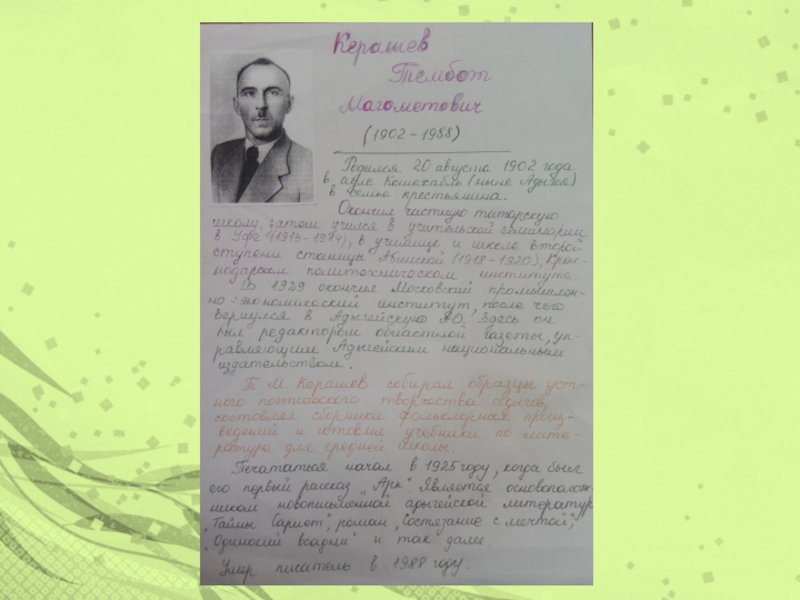 Керашев
Тембот
Магометович
(1902 - 1988)
Родился 20 августа 1902 года
в ауле Кошехабль (ныне Адыгея)
в семье крестьянина.
Окончил частную татарскую
школу, затем учился в учительской семинарии
в Уфе (1913-1914), в училище и школе второй
ступени станицы Абинской (1918-1920), Крас-
нодарском политехническом институте.
В 1929 окончил Московский промышлен-
но-экономический институт, после чего
вернулся в Адыгейскую АО. Здесь он
был редактором областной газеты, уп-
равляющим Адыгейским национальным
издательством.
Т. М. Керашев собирал образцы уст-
ного поэтического творчества адыгов,
составлял сборники фольклорных произ-
ведений и готовил учебники по лите-
ратуре для средней школы.
Печататься начал в 1925 году, когда был
его первый рассказ „Арк". Является основополож-
ником новописьменной адыгейской литератур
„Тайны Шариет", роман „Состязание с мечтой",
„Одинокий всадник" и так далее.
Умер писатель в 1988 году.